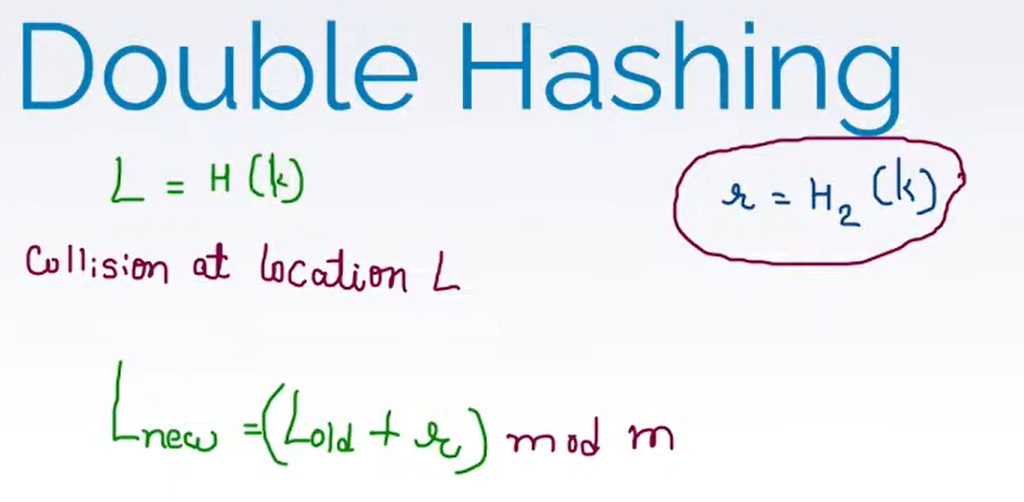 Double Hashing
L = H (k)
r = H₂ (k)
Collision at location L
Lnew = (Lold + r) mod m